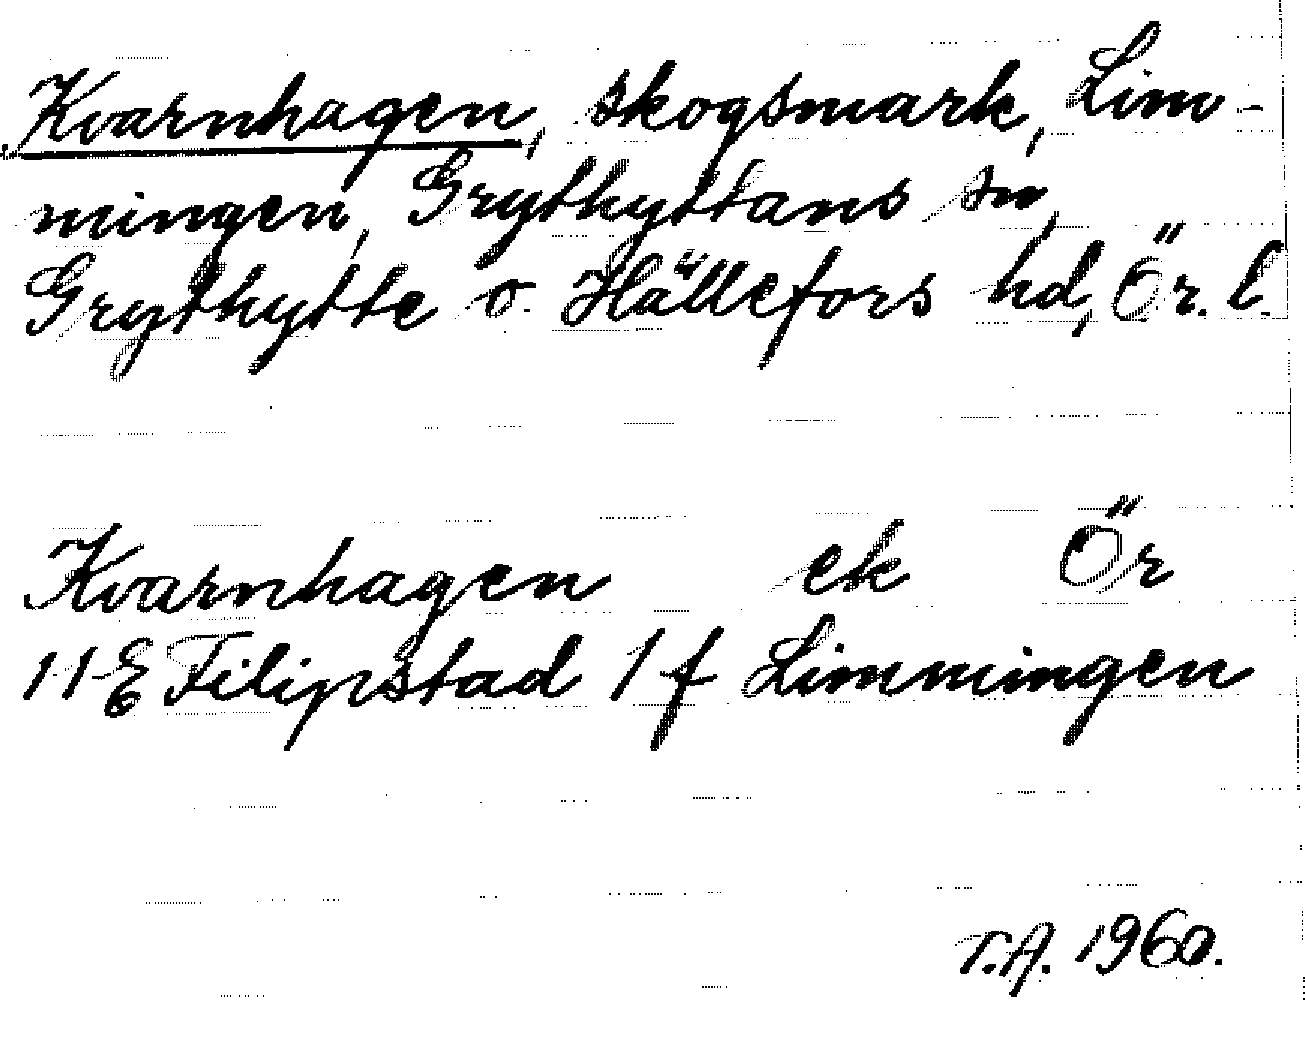 Kvarnhagen, skogsmark, Lim-
mingen, Grythyttans sn,
Grythytte o. Hällefors hd, Ör. l.
Kvarnhagen ek Ör
11E Filipstad 1 f Limmingen
T.A. 1960.